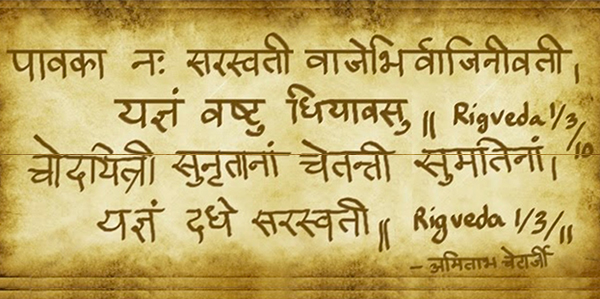 पावका नः सरस्वती वाजेभिर्वाजिनीवती।
यज्ञं वष्टु धियावसु॥ Rigveda 1/3/10
चोदयित्री सुनृतानां चेतन्ती सुमतिनां।
यज्ञं दधे सरस्वती॥ Rigveda 1/3/11
- अमिताभ चेटार्जी